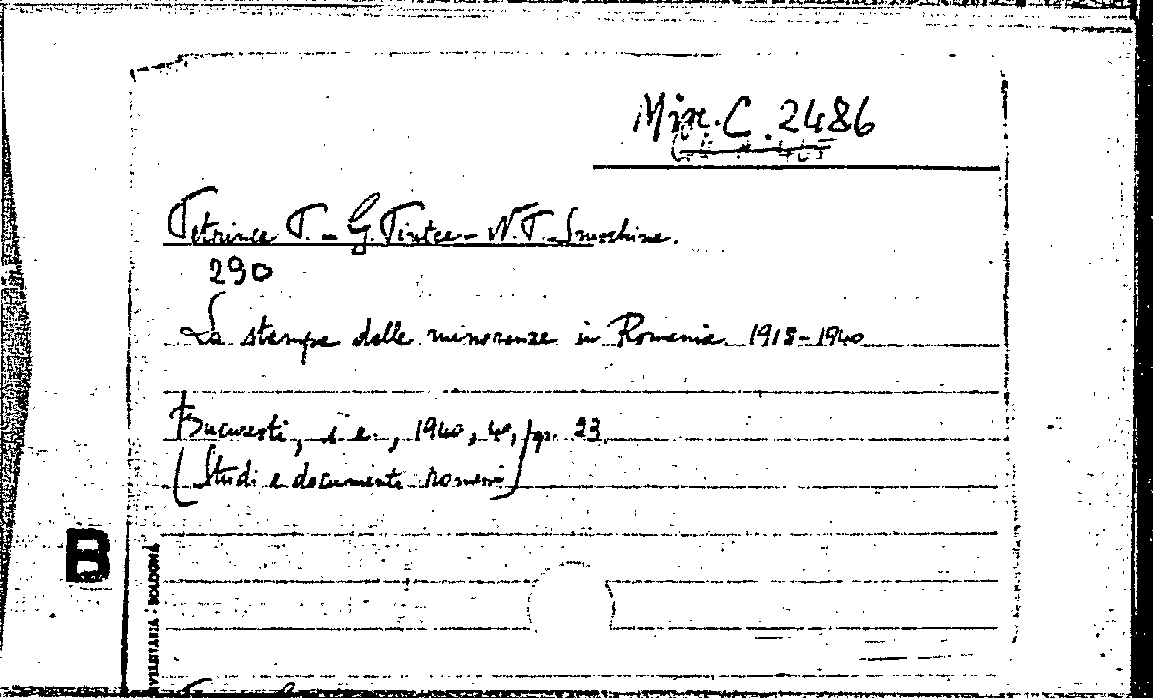 Misc. C. 2486
Petrince T. - G. Tintee - N. T. Smochine.
290
La stampa delle minoranze in Romania 1918-1940
Bucuresti, s. e., 1940, 4°, pp. 23
(Studi e documenti romeni)
B
BOLOGNA